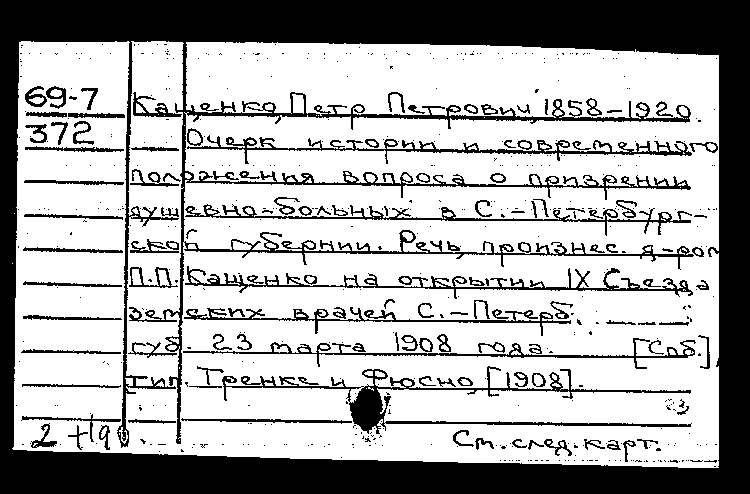 69-7 Кащенко, Петр Петрович, 1858-1920.
372 Очерк истории и современного
положения вопроса о призрении
душевно-больных в С.-Петербург-
ской губернии. Речь, произнес. д-ром
П.П. Кащенко на открытии IX Съезда
земских врачей С.-Петерб.
губ. 23 марта 1908 года. [Спб.],
тип. Тренке и Фюсно, [1908].
См. след. карт.